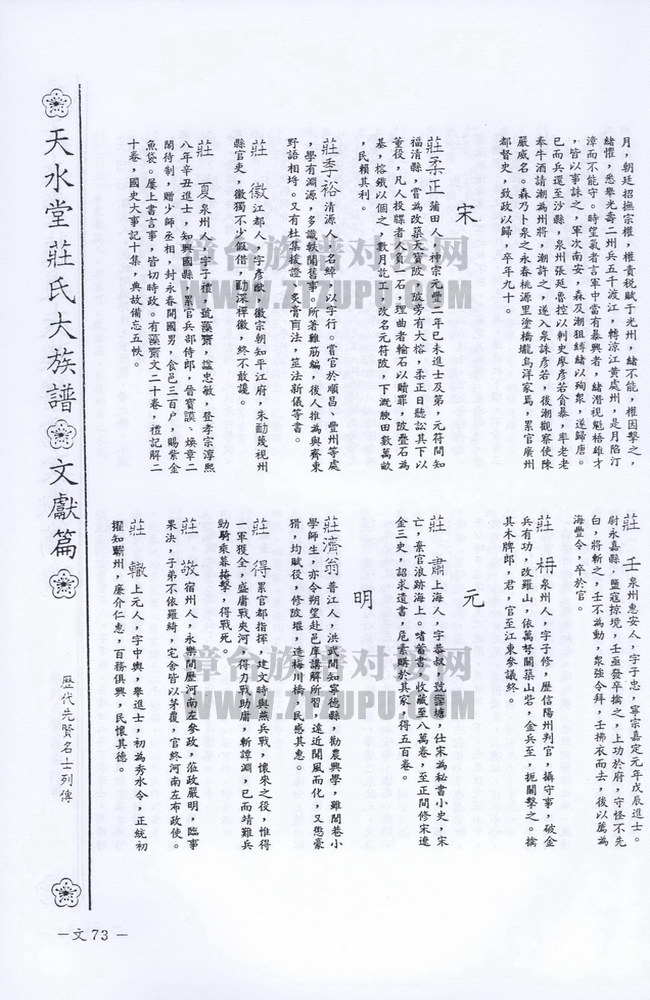 月，朝廷招撫宗權，權責稅賦于光州，緒不能，權因擊之，
緒懼，悉舉光壽二州兵五千渡江，轉涼江黃處州，是月陷汀
漳而不能守。時望氣者言軍中當有暴興者，緒潛視魁梧雄才
，皆以事誅之，軍次南安，森及潮狙縛緒以殉衆，遂歸唐。
已而兵還至沙縣，泉州張延魯控以刺史廖彥若貪暴，率老老
奉牛酒請潮為州將，潮許之，遂入泉誅彥若，後潮觀察使陳
嚴威名。森乃卜泉之永春桃源里塗橋壠烏洋家焉，累官廣州
都督史，致政以歸，卒年九十。
宋
莊柔正 蒲田人，神宗元豐二年己未進士及第，元符間知
福清縣，嘗為改築天寶陂，陂旁有大榕，柔正日聽訟其下以
董役，凡人投牒者人負一石，理曲者輸石以贖罪，陂疊石為
基，榕鐵以個之，數月訖工，改名元符陂，下溉腴田數萬畝
，民賴其利。
莊季裕 清源人，名綽，以字行。嘗官於順昌、豐州等處
，學有淵源，多識軼聞舊事。所著雞筋編，後人推為與齊東
野語相埓。又有杜集援證、炙膏肓法，筮法新儀等書。
莊　徽 江都人，字彥猷，徽宗朝知平江府，朱勔蔑視州
縣官吏，徽獨不少假借，勔深憚徽，終不敢讒。
莊　夏 泉州人，字子禮，號藻齋，諡忠敏，登孝宗淳熙
八年辛丑進士，知興國縣，累官兵部侍郎，晉寶謨、煥章二
閣待制，贈少師丞相，封永春開國男，食邑三百户，賜紫金
魚袋。屢上書言事，皆切時政。有藻齋文二十卷，禮記解二
十卷，國史大事記十集，典故備忘五帙。
莊　壬 泉州惠安人，字子忠，寧宗嘉定元年戊辰進士。
尉永嘉縣，鹽寇掠境，壬亟發卒擒之，上功於府，守怪不先
白，將斬之，壬不為動，衆強令拜，壬拂衣而去，後以薦為
海豐令，卒於官。
莊　枬 泉州人，字子修，歷信陽州判官，攝守事，破金
兵有功，改羅山，依萬弩關築山砦，金兵至，扼關擊之。擒
其木牌郎，君，官至江東參議終。
元
莊　肅 上海人，字恭叔，號蓼塘，仕宋為秘書小史，宋
亡，棄官浪跡海上。嗜蓄書，收藏至八萬卷，至正間修宋遼
金三史，詔求遺書，危素購於其家，得五百卷。
明
莊濟翁 晋江人，洪武間知寧德縣，勸農興學，雖閭巷小
學師生，亦令朔望赴邑庠講解所習，遠近聞風而化，又懲豪
猾，均賦役，修陂堰，造梅川橋，民感其惠。
莊　得 累官都指揮，建文時與燕兵戰，懷來之役，惟得
一軍獲全，盛庸戰夾河，得力戰助庸，斬譚淵，已而靖難兵
勁騎乘暮掩擊，得戰死。
莊　敬 宿州人，永樂間歷河南左參政，蒞政嚴明，臨事
果決，子弟不依羅綺，宅舍皆以茅覆，官終河南左布政使。
莊　轍 上元人，字中輿，舉進士，初為秀水令，正統初
擢知蘄州，廉介仁惠，百務俱興，民懷其德。
天水堂莊氏大族譜 文獻篇
歷代先賢名士列傳
－文73－
章台族谱对接网
WWW.ZTZUPU.COM
章台族谱对接网
WWW.ZTZUPU.COM